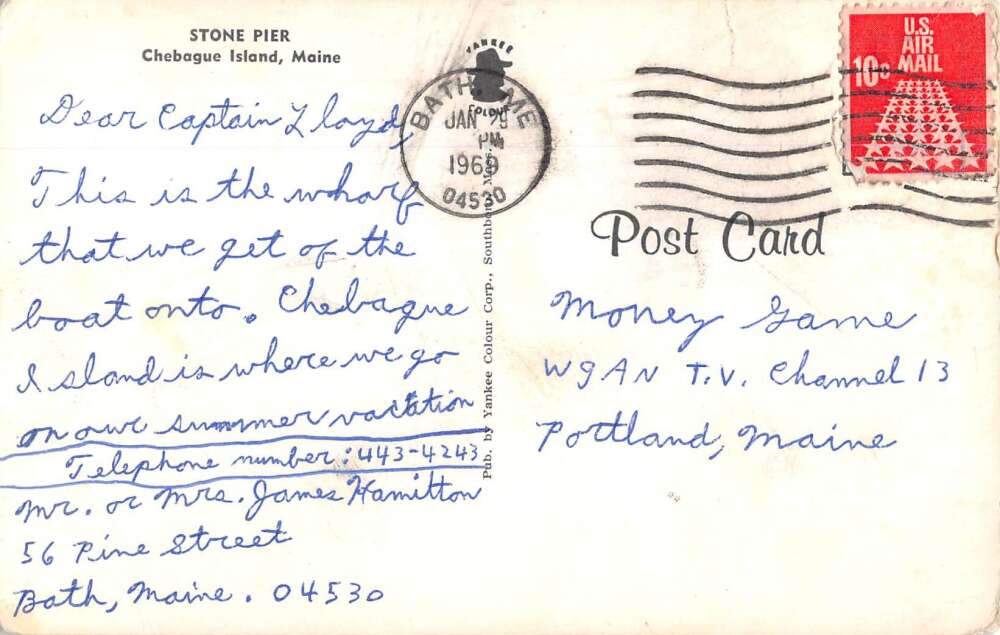 STONE PIER
Chebague Island, Maine
Dear Captain Lloyd,
This is the wharf
that we get of the
boat onto. Chebague
Island is where we go
on our summer vacation
Telephone number: 443-4243
Mr. or Mrs. James Hamilton
56 Pine Street
Bath, Maine. 04530
YANKEE
COLOUR
BATH, ME
JAN 29
PM
1969
04530
Pub. by Yankee Colour Corp., Southboro, Mass.
U.S.
AIR
MAIL
10c
Post Card
Money Game
WGAN T.V. Channel 13
Portland, Maine